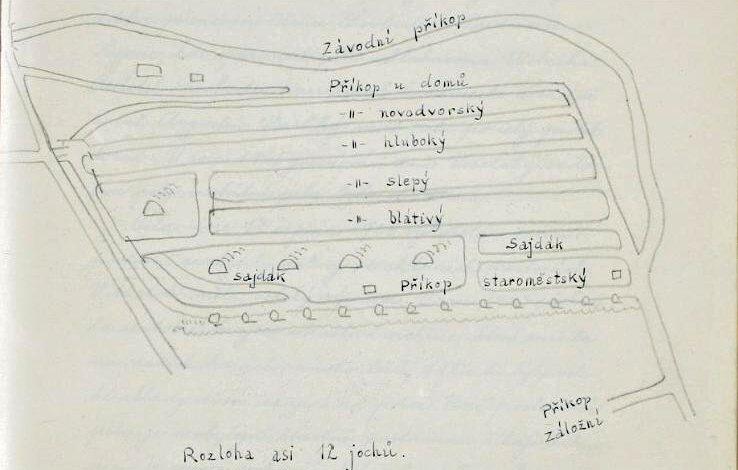 Závodní příkop
Příkop u domů
-"- novodvorský
-"- hluboký
-"- slepý
-"- blátivý
Sajdák
Sajdák
Příkop
staroměstský
Příkop
záložní
Rozloha asi 12 jochů.